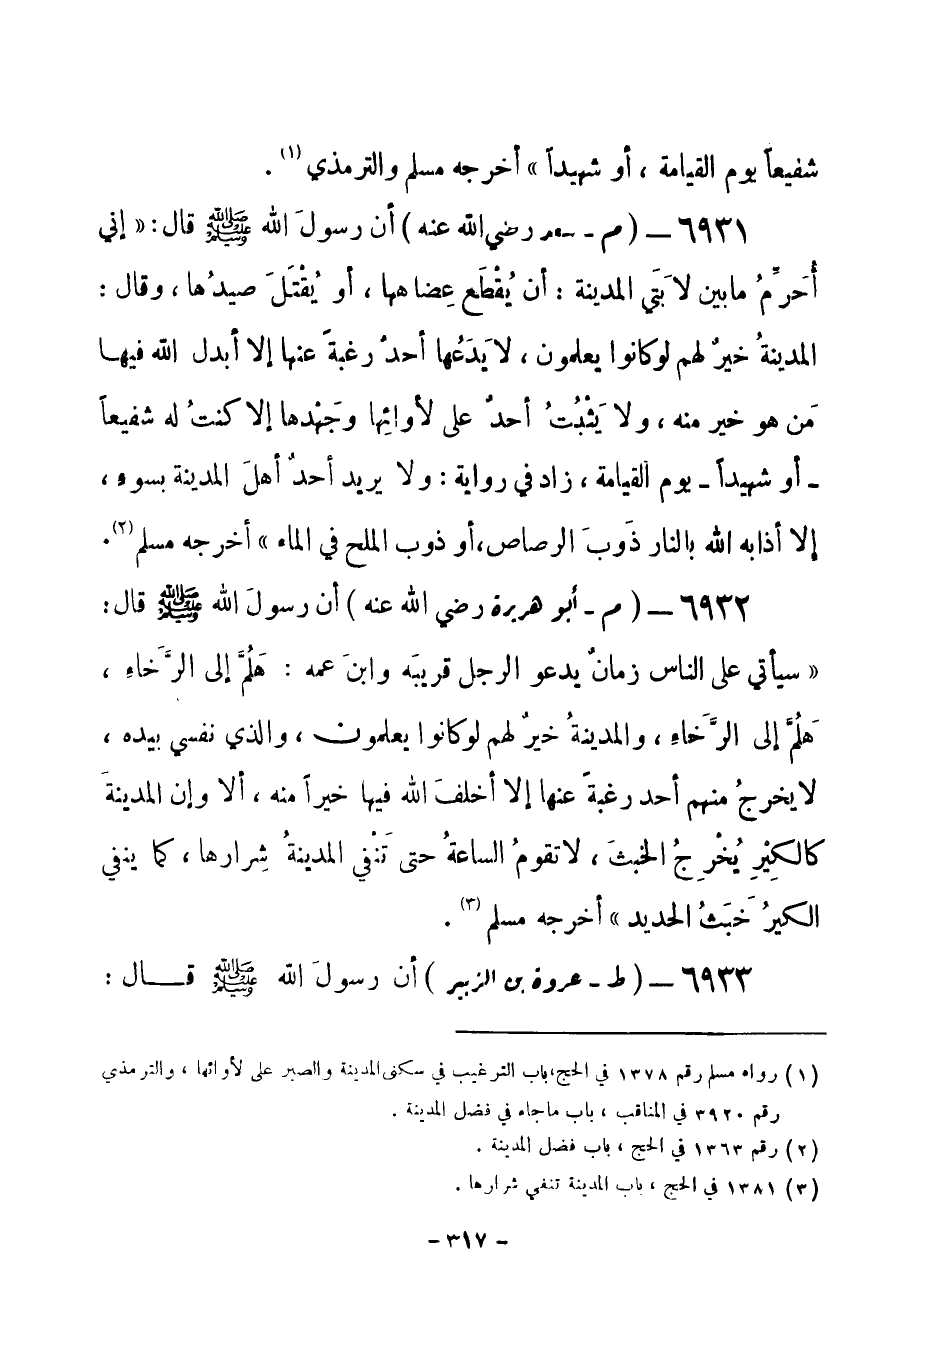 شفيعاً يوم القيامة ، أو شهيداً » أخرجه مسلم والترمذي (١) .
٦٩٣١ – ( م - سعد رضي الله عنه ) أن رسولَ الله ﷺ قال : « إني
أُحَرِّمُ مابين لابَتَي المدينة : أن يُقْطَع عِضاهها ، أو يُقْتَلَ صيدُها ، وقال :
المدينةُ خيرٌ لهم لوكانوا يعلمون ، لا يَدَعُها أحدٌ رغبةً عنها إلا أبدل الله فيها
مَن هو خير منه ، ولا يَثْبُتُ أحدٌ على لأوائِها وجَهْدها إلا كنتُ له شفيعاً
ـ أو شهيداً ـ يوم القيامة ، زاد في رواية : ولا يريد أحدٌ أهلَ المدينة بسوء ،
إلا أذابه الله بالنار ذَوبَ الرصاص،أو ذوب الملح في الماء » أخرجه مسلم (٢).
٦٩٣٢ – ( م - أبو هريرة رضي الله عنه ) أن رسولَ الله ﷺ قال :
« سيأتي على الناس زمانٌ يدعو الرجل قريبَه وابنَ عمه : هَلُمَّ إلى الرَّخاءِ ،
هَلُمَّ إلى الرَّخاءِ ، والمدينةُ خيرٌ لهم لوكانوا يعلمون ، والذي نفسي بيده ،
لايخرجُ منهم أحد رغبةً عنها إلا أخلفَ الله فيها خيراً منه ، ألا وإن المدينةَ
كالكِيْرِ يُخْرِجُ الخبثَ ، لاتقومُ الساعةُ حتى تَنْفي المدينةُ شِرارها ، كما ينفي
الكيرُ خَبَثَ الحديد » أخرجه مسلم (٣) .
٦٩٣٣ – ( ط - عروة بن الزبير ) أن رسولَ الله ﷺ قـــال :
(١) رواه مسلم رقم ١٣٧٨ في الحج،باب الترغيب في سكنى المدينة والصبر على لأوائها ، والترمذي
رقم ٣٩٢٠ في المناقب ، باب ماجاء في فضل المدينة .
(٢) رقم ١٣٦٣ في الحج ، باب فضل المدينة .
(٣) ١٣٨١ في الحج ، باب المدينة تنفي شرارها .
- ٣١٧ -